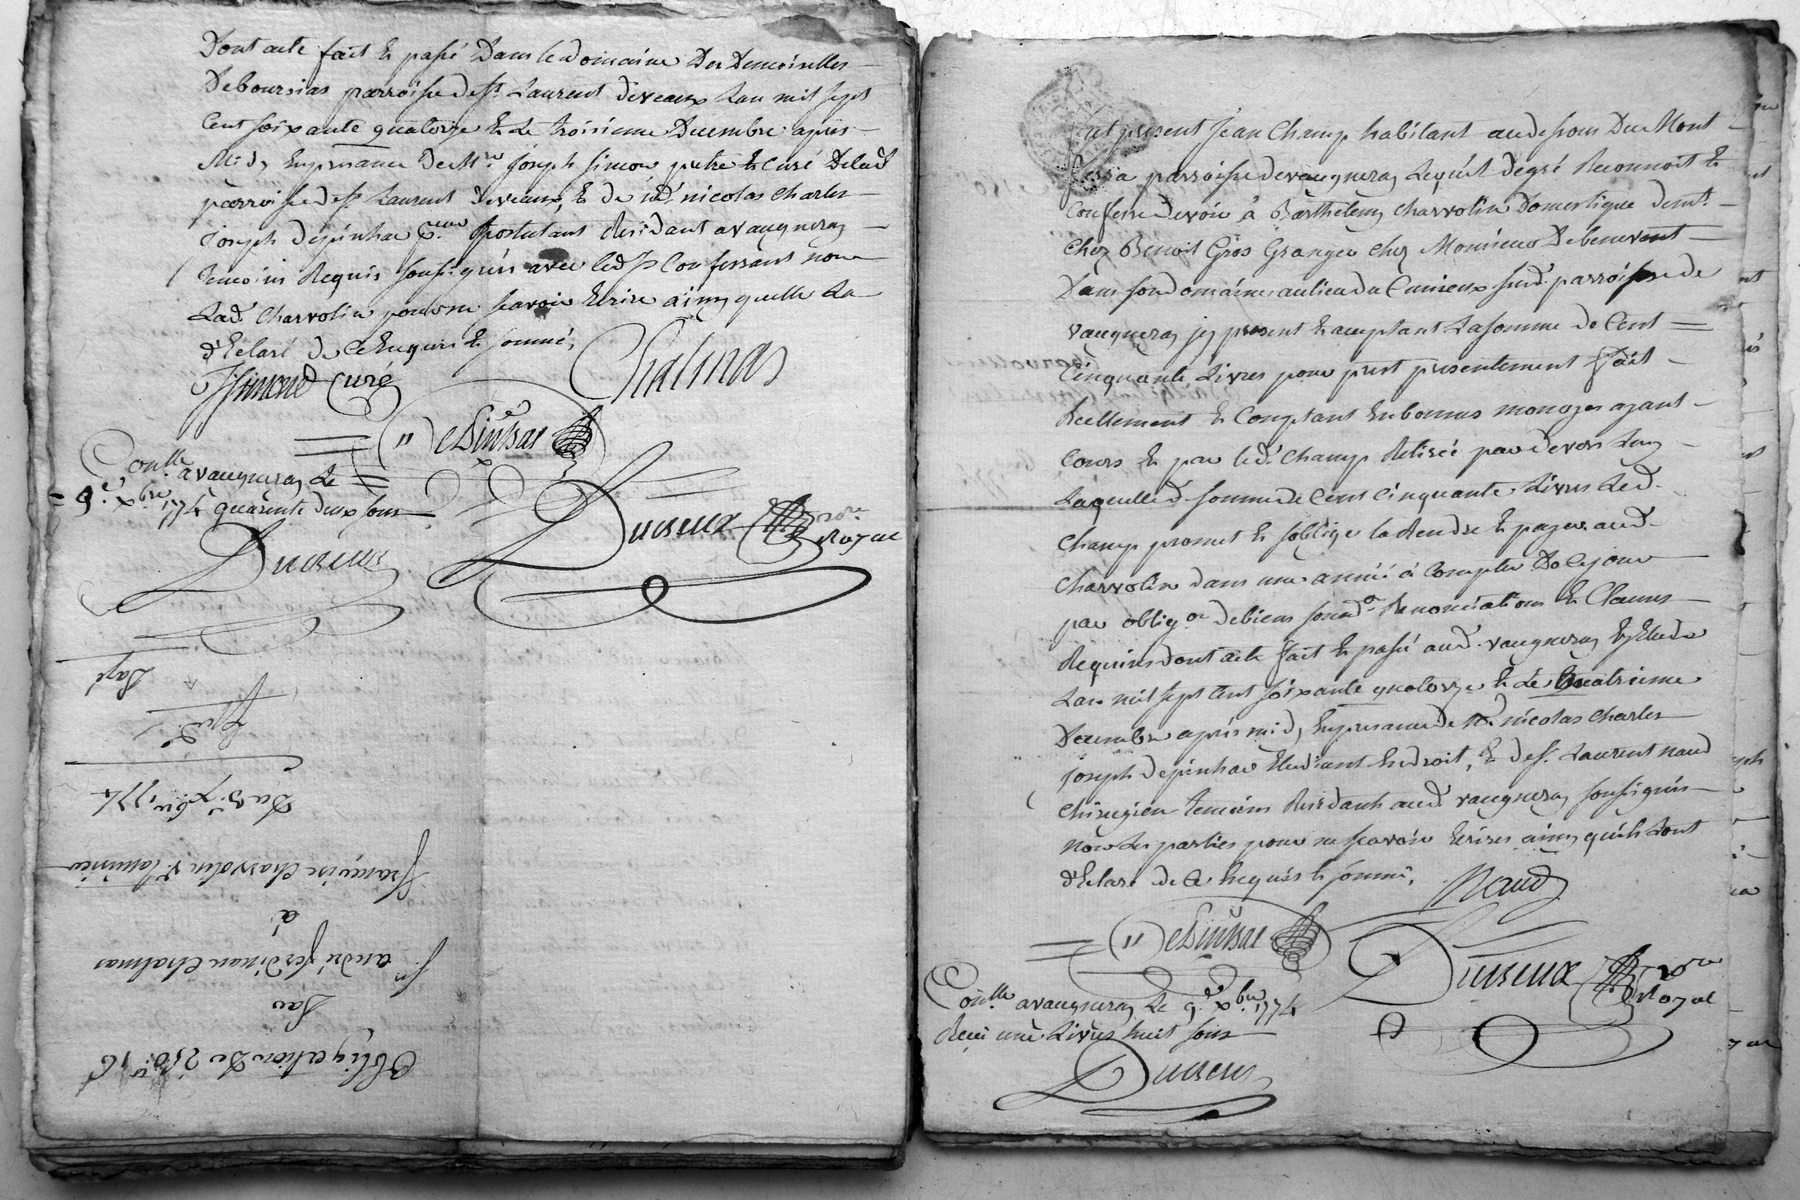 Dont acte fait & passé Dans le domaine Des Demoiselles
Deboursias parroisse de st. Laurent deveaux Lan mil sept
Cent soixante quatorze & Le troisieme Decembre après
Midy En presence de Mre. joseph simon pretre & curé De lad.
parroisse de st Laurent deveaux, & de nicolas charles
joseph depinhac postulant Residant a vaugneray
Temoins Requis soussignés avec led. Confessant non
Lad. Charvolin pour ne scavoir Ecrire ainsy quelle La
d'Eclaré de ce Enquis & sommé,
Simond curé Chalmas
Depinhac
Conllé a vaugneray Le
9e. xbre. 1774 quarente deux sous
Ducreux
Ducreux Royal
Obligation De
Par
sr. andré ferdinan Chalmas
à
françoise Charvolin
Du 3e. xbre 1774
Est present jean Champ habitant au dessous Du Mont
parroisse devaugneray Lequel de gré Reconnoit &
Confesse devoir à Barthelemy charvolin Domestique demt.
chez Benoit Gros Granger chez Monsieur Debenevent
Dans son domaine au lieu du Cunieux susd. parroisse de
vaugneray jcy present & acceptant La somme de Cent
Cinquante Livres pour prest presentement fait
Reellement & Comptant En bonnes monoyes ayant
cours & par led. Champ Retirée par devers Luy
Laquelle d. somme de Cent Cinquante Livres Led.
champ promet & soblige la Rendre & payer aud.
Charvolin dans une année à Compter De Ce jour
par oblig.on de biens Renonciations & Clauses
Requises dont acte fait & passé aud. vaugneray Etude
Lan mil sept Cent soixante quatorze & Le Quatrieme
Decembre après midy En presence de nicolas charles
joseph depinhac Etudiant En droit, & de sr. Laurent naud
chirugien temoins Residants aud. vaugneray soussignés
non Les parties pour ne scavoir Ecrire ainsy qu'ils L'ont
d'Eclaré de ce Enquis & sommé,
Naud
Depinhac
Ducreux Royal
Conllé a vaugneray Le 9e xbre. 1774
Reçu une Livres huit sous
Ducreux